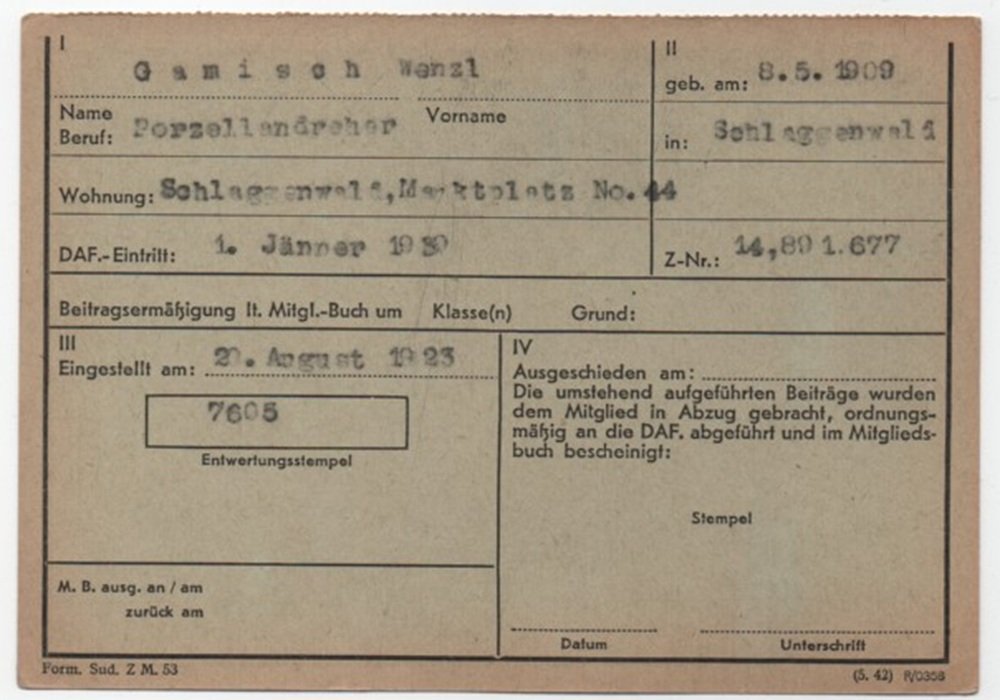 I
II
Gamisch Wenzl
geb. am: 8.5.1909
Name Vorname
Beruf: Porzellandreher
in: Schlaggenwald
Wohnung: Schlaggenwald, Marktplatz No.44
DAF.-Eintritt: 1. Jänner 1939
Z-Nr.: 14,891.677
Beitragsermäßigung lt. Mitgl.-Buch um Klasse(n) Grund:
III
Eingestellt am: August 1923
7605
Entwertungsstempel
M. B. ausg. an / am
zurück am
IV
Ausgeschieden am:
Die umstehend aufgeführten Beiträge wurden
dem Mitglied in Abzug gebracht, ordnungs-
mäßig an die DAF. abgeführt und im Mitglieds-
buch bescheinigt:
Stempel
Datum Unterschrift
Form. Sud. Z M. 53
(5. 42) R/0358